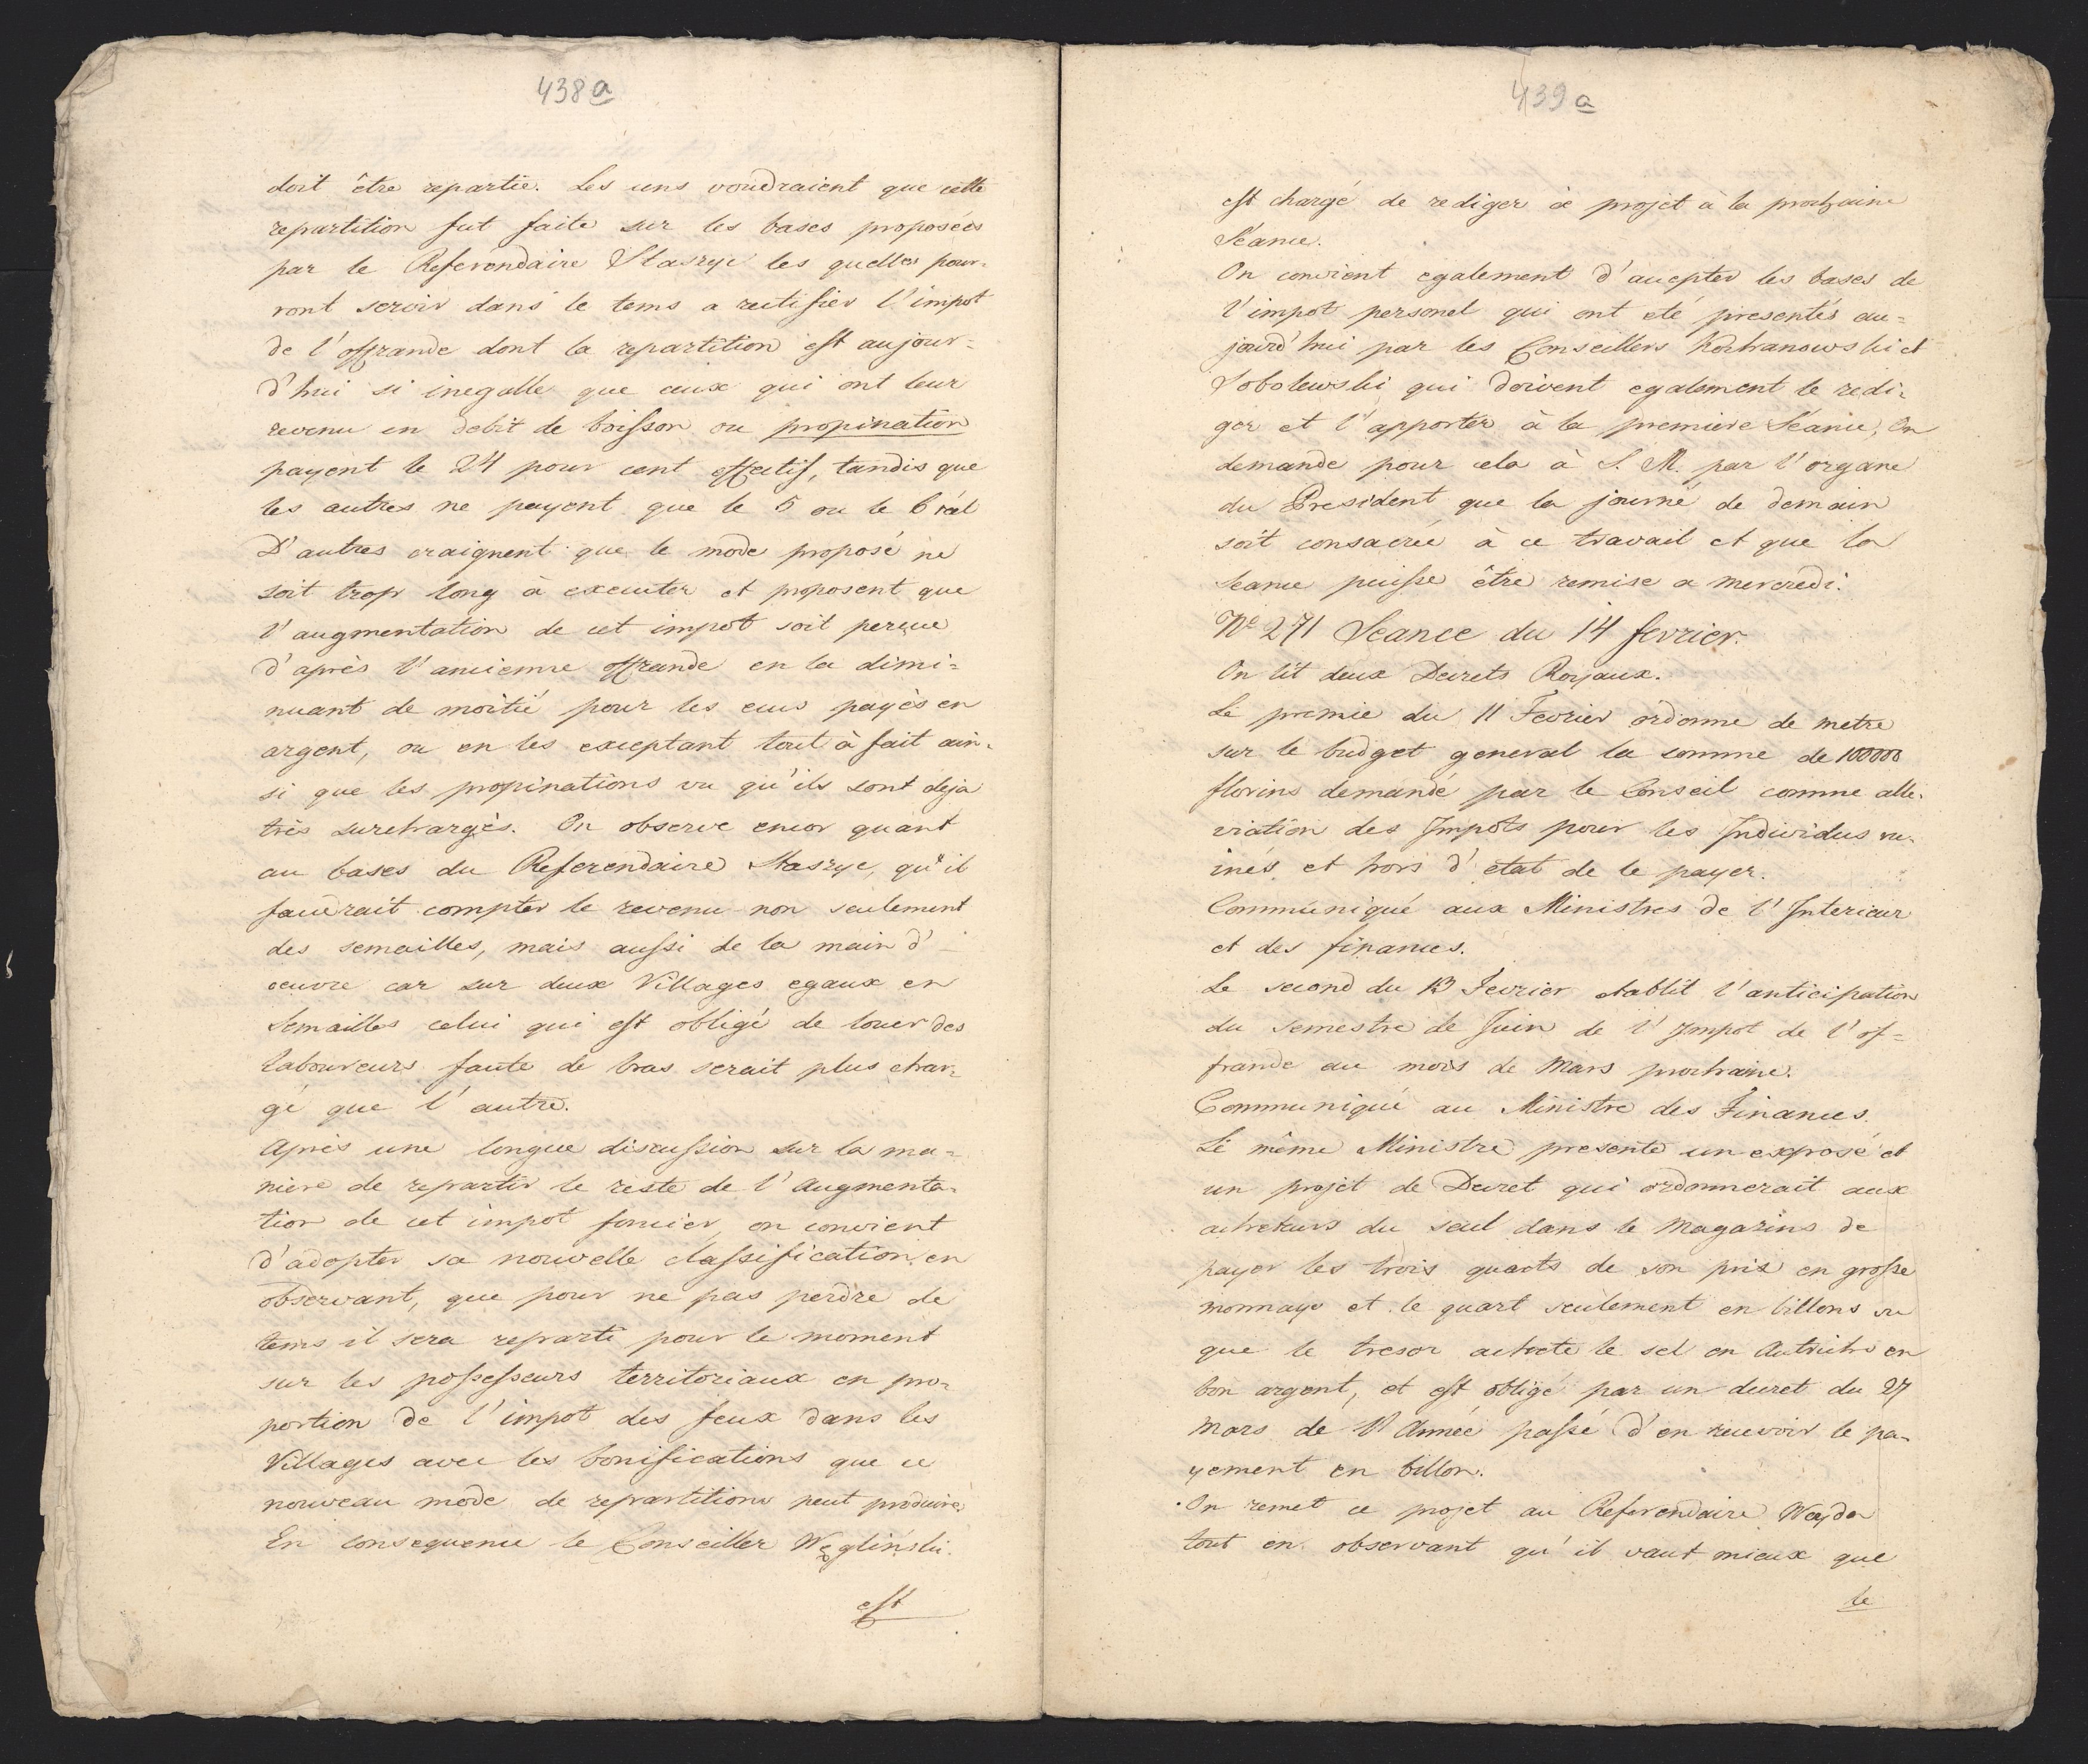 438 a
doit être repartie. Les uns voudraient que cette
repartition fut faite sur les bases proposées
par le Referendaire Staszyc les quelles pour-
ront servir dans le tems a rectifier l'impot
de l'offrande dont la repartition est aujour-
d'hui si inegalle que ceux qui ont leur
revenu en debit de boisson ou propination
payent le 24 pour cent effectif, tandis que
les autres ne payent que le 5 ou le 6 réel
D'autres craignent que le mode proposé ne
soit trop long à executer et proposent que
l'augmentation de cet impot soit perçue
d'après l'ancienne offrande en la dimi-
nuant de moitié pour les cens payés en
argent, ou en les exceptant tout à fait ain-
si que les propinations vu qu'ils sont deja
très surchargés. On observe encor quant
au bases du Referendaire Staszyc, qu'il
faudrait compter le revenu non seulement
des semailles, mais aussi de la main d'-
oeuvre car sur deux Villages egaux en
Semailles celui qui est obligé de louer des
laboureurs faute de bras serait plus char-
gé que l'autre.
Après une longue discussion sur la ma-
niere de repartir le reste de l'Augmenta-
tion de cet impot foncier, on convient
d'adopter sa nouvelle classification en
observant, que pour ne pas perdre de
tems il sera reparti pour le moment
sur les possesseurs territoriaux en pro-
portion de l'impot des feux dans les
Villages avec les bonifications que ce
nouveau mode de repartitions peut produire
En consequence le Conseiller Węgliński
est
439 a
est chargé de rediger ce projet à la prochaine
Séance.
On convient egalement d'accepter les bases de
l'impot personel qui ont eté presentés au-
jourd'hui par les Conseillers Kochanowski et
Sobolewski qui doivent egalement le redi-
ger et l'apporter à la premiere Séance, On
demande pour cela à S. M. par l'organe
du President que la journé de demain
soit consacrée à ce travail et que la
Seance puisse être remise a mercredi.
No 271 Seance du 14 fevrier.
On lit deux Decrets Royaux.
Le premie du 11 Fevrier ordonne de metre
sur le budget general la somme de 100000
florins demandé par le Conseil comme alle-
viation des Impots pour les Individus ru-
inés et hors d'etat de le payer.
Communiqué aux Ministres de l'Interieur
et des finances.
Le second du 13 Fevrier etablit l'anticipation
du semestre de Juin de l'Impot de l'of-
frande au mois de Mars prochaine.
Communiqué au Ministre des Finances.
Le même Ministre presente un exposé et
un projet de Decret qui ordonnerait aux
acheteurs du seul dans le Magazins de
payer les trois quarts de son prix en grosse
monnaye et le quart seulement en billons vu
que le tresor achete le sel en Autriche en
bon argent, et est obligé par un decret du 27
Mars de l'Année passé d'en recevoir le pa-
yement en billon.
On remet ce projet au Referendaire Wayda
tout en observant qu'il vaut mieux que
le